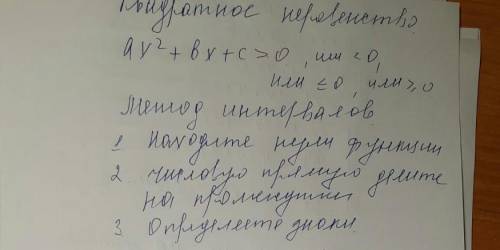 Квадратное неравенство.
ax² + bx + c > 0, или < 0,
или ≤ 0, или ≥ 0
Метод интервалов
1 Находите нули функции
2 числовую прямую делите
на промежутки
3. Определяете знаки